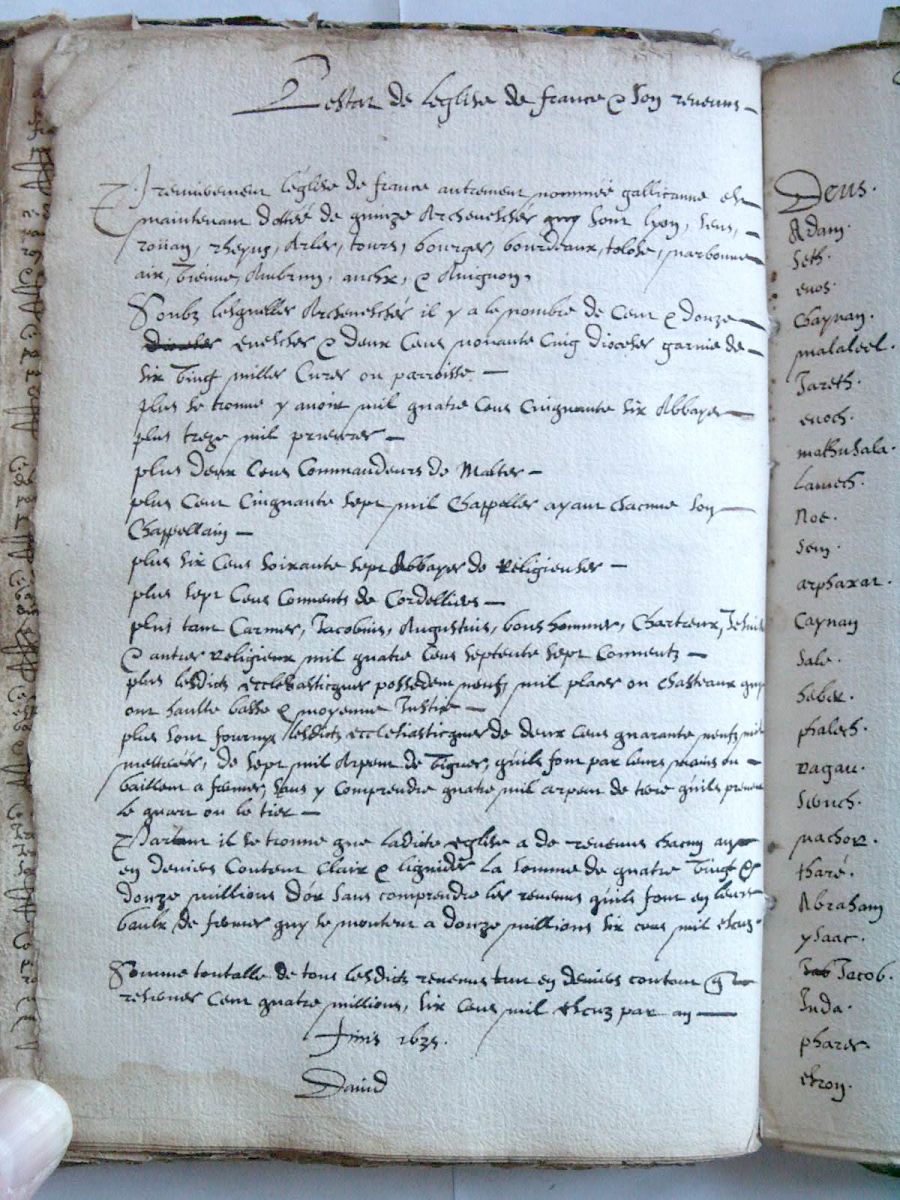 Lestat de leglise de france & son revenus
Premierement léglise de france autrement nommée gallicanne est
maintenant dottéé de quinze Archeveschés quy sont lyon, sens,
roüan, rheyms, Arles, tours, bourges, bourdeaux, tolose, narbonne
aix, vienne, Ambrun, auchx, & Avignon,
Soubz lesquelles Archeveschés il y a le nombre de Cent & douze
eveschez & deux Cens nonante Cinq dioceses garnie de
six vingt milles Cures ou parroisse
plus se trouve y avoir mil quatre Cens Cinquante six Abbayes
plus treze mil prieures
plus deux Cens Commandeurs de Maltes
plus Cent Cinquante sept mil Chappelles ayant chacune son
Chappellain
plus six Cens soixante sept Abbayes de Religieuses
plus sept Cens Convents de Cordelliers
plus tant Carmes, Jacobins, Augustins, bons hommes, Chartreux, Jesuis
& autres Religieux mil quatre Cens septente sept Conventz
plus lesdicts ecclesiasticques possedent neufz mil places ou chasteaux quy
ont haulte basse & moyenne Justice
plus sont fournys lesdicts ecclesiasticques de deux Cens quarante neufz mil
metteriés, de sept mil Arpent de vignes, quils font par leurs mains ou
baillent a fermes, sans y Comprendre quatre mil arpent de tiere quils prenent
le quart ou le tier
Partant il se trouve que ladicte eglise a de revenus chacun an
en deniers Content Clair & liquider la somme de quatre vingt &
douze millions dór sans comprendre les revenus quils font en leurs
baulx de fermes quy se montent a douze millions six cens mil escus
Somme toutalle de tous lesdicts revenus tant en deniers contant
reserves Cent quatre millions, six Cens mil escuz par an
Finis 1635.
David
Deus.
Adam.
Seth.
enos.
Chaynan.
malaleel.
Jareth.
enoch.
mathusala.
Lamech.
Noe.
Sem.
arphaxat.
Caynan
Sale.
heber.
phalech.
ragau.
Seruch.
nachor.
tharé.
Abraham
ysaac.
Jacob.
Juda.
phares.
esron.